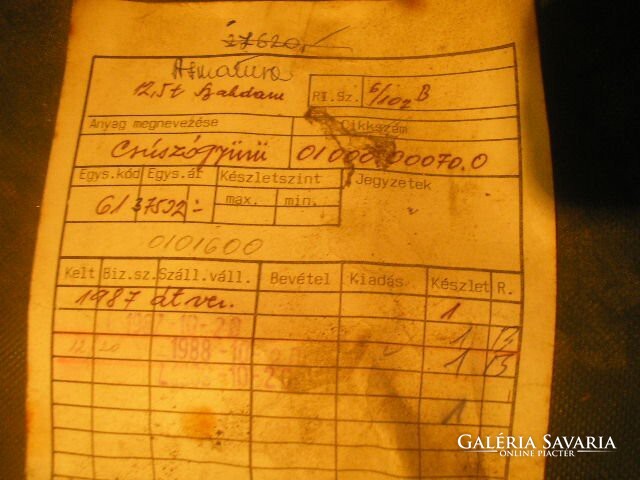 27620,-
Armatura
12,5t
RI.Sz. 6/102 B
Anyag megnevezése Cikkszám
Csúszógyűrű 01000 00070.0
Egys.kód Egys.ár Készletszint Jegyzetek
61 37592:- max. min.
0101600
Kelt Biz.sz. Száll.váll. Bevétel Kiadás Készlet R.
1987 átver. 1
1987-10-20 1
12 20 1988-10-20 1
10-20
1
GALÉRIA SAVARIA
ONLINE PIACTÉR